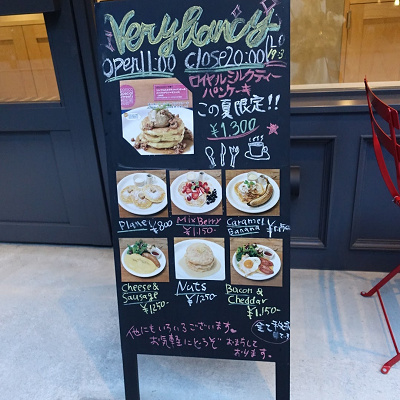 Veryfancy
open 11:00 close 20:00 L.o 19:30
ロイヤルミルクティー
パンケーキ
この夏限定!!
¥1,300
Plane ¥800
Mix Berry ¥1,150-
Caramel Banana
Cheese & Sausage ¥1250-
Nuts ¥1,250
Bacon & Cheddar ¥1,150-
他にもいろいろございます。
お気軽にどうぞ
おまちして
おります。